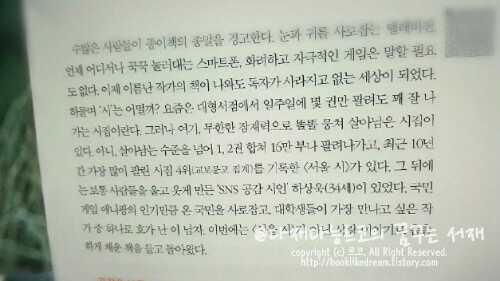 수많은 사람들이 종이책의 종말을 경고한다. 눈과 귀를 사로잡는 텔레비전,
언제 어디서나 꾹꾹 눌러대는 스마트폰, 화려하고 자극적인 게임은 말할 필요
도 없다. 이제 이름난 작가의 책이 나와도 독자가 사라지고 없는 세상이 되었다.
하물며 '시'는 어떨까? 요즘은 대형서점에서 일주일에 몇 권만 팔려도 꽤 잘 나
가는 시집이란다. 그러나 여기, 무한한 잠재력으로 똘똘 뭉쳐 살아남은 시집이
있다. 아니, 살아남는 수준을 넘어 1, 2권 합쳐 16만 부나 팔려나가고, 최근 10년
간 가장 많이 팔린 시집 4위(교보문고 집계)를 기록한 <서울 시>가 있다. 그 뒤에
는 보통 사람들을 울고 웃게 만든 'SNS 공감 시인' 하상욱(34세)이 있었다. 국민
게임 애니팡의 인기만큼 온 국민을 사로잡고, 대학생들이 가장 만나고 싶은 작
가 중 하나로 호가 난 이 남자. 이번에는
하게 채운 책을 들고 돌아왔다.
꿈꾸는 서재
copyright (c) 르코. All Right Reserved.
http://booklikedream.tistory.com